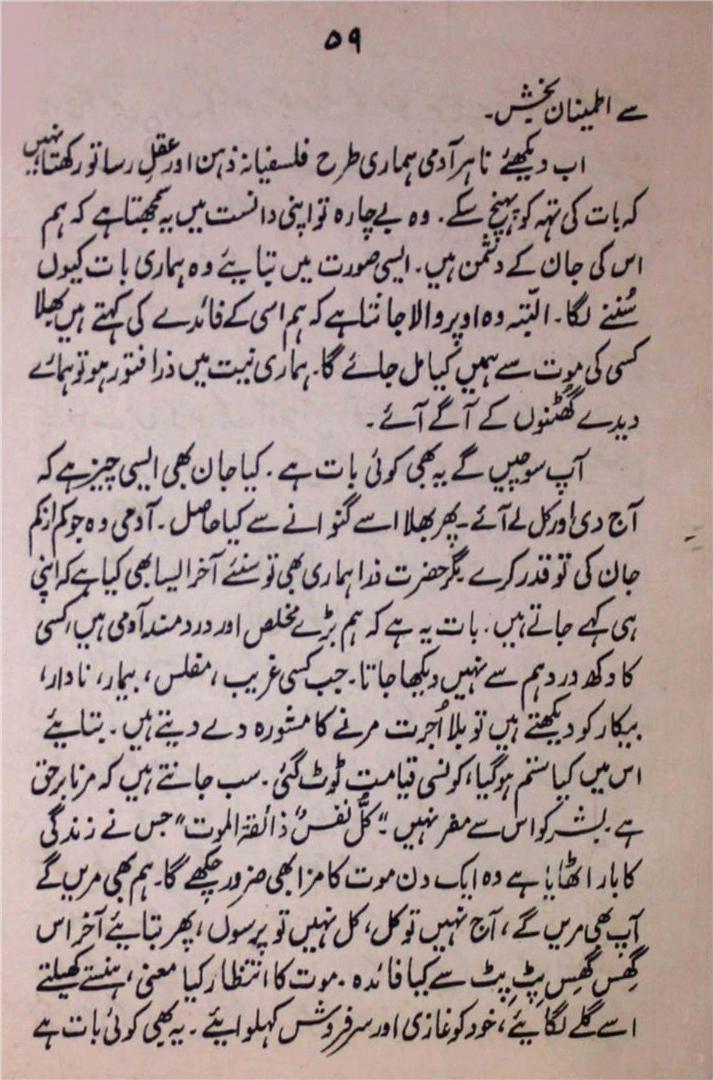 ۵۹
سے اطمینان بخش۔
اب دیکھئے نا ہر آدمی ہماری طرح فلسفیانہ ذہن اور عقلِ رسا تو رکھتا نہیں
کہ بات کی تہہ کو پہنچ سکے۔ وہ بے چارہ تو اپنی دانست میں یہ سمجھتا ہے کہ ہم
اس کی جان کے دشمن ہیں۔ ایسی صورت میں بتایئے وہ ہماری بات کیوں
سُننے لگا۔ البّتہ وہ اوپر والا جانتا ہے کہ ہم اسی کے فائدے کی کہتے ہیں بھلا
کسی کی موت سے ہمیں کیا مل جائے گا۔ ہماری نیت میں ذرا فتور ہو تو ہمارے
دیدے گھٹنوں کے آگے آئے۔
آپ سوچیں گے یہ بھی کوئی بات ہے۔ کیا جان بھی ایسی چیز ہے کہ
آج دی اور کل لے آئے۔ پھر بھلا اسے گنوانے سے کیا حاصل۔ آدمی وہ جو کم از کم
جان کی تو قدر کرے مگر حضرت ذرا ہماری بھی تو سنئے آخر ایسا بھی کیا ہے کہ اپنی
ہی کہے جاتے ہیں۔ بات یہ ہے کہ ہم بڑے مخلص اور دردمند آدمی ہیں، کسی
کا دکھ درد ہم سے نہیں دیکھا جاتا۔ جب کسی غریب، مفلس، بیمار، نادار،
بیکار کو دیکھتے ہیں تو بلا اُجرت مرنے کا مشورہ دے دیتے ہیں۔ بتایئے
اس میں کیا ستم ہو گیا، کونسی قیامت ٹوٹ گئی۔ سب جانتے ہیں کہ مرنا برحق
ہے۔ بشر کو اس سے مفر نہیں۔ "کلُّ نفسٌ ذائقۃ الموت" جس نے زندگی
کا بار اٹھایا ہے وہ ایک دن موت کا مزا بھی ضرور چکھے گا۔ ہم بھی مریں گے
آپ بھی مریں گے، آج نہیں تو کل، کل نہیں تو پرسوں، پھر بتایئے آخر اس
گھِس گھِس پِٹ پِٹ سے کیا فائدہ۔ موت کا انتظار کیا معنی، ہنستے کھیلتے
اسے گلے لگایئے، خود کو غازی اور سرفروش کہلوایئے۔ یہ بھی کوئی بات ہے